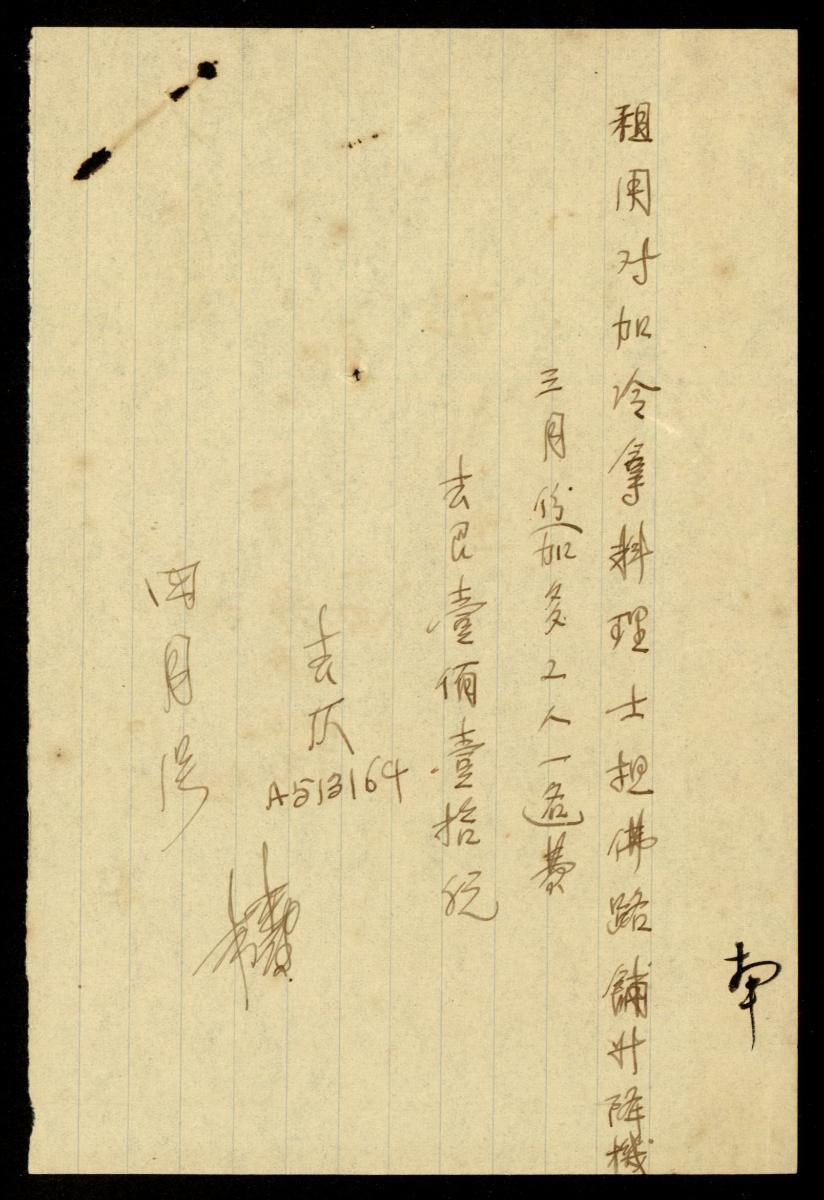 南
租用对加冷拿料理士担佛路舖升降機
三月份加多工人一名費
去艮壹佰壹拾元
去仄
A513164
四月